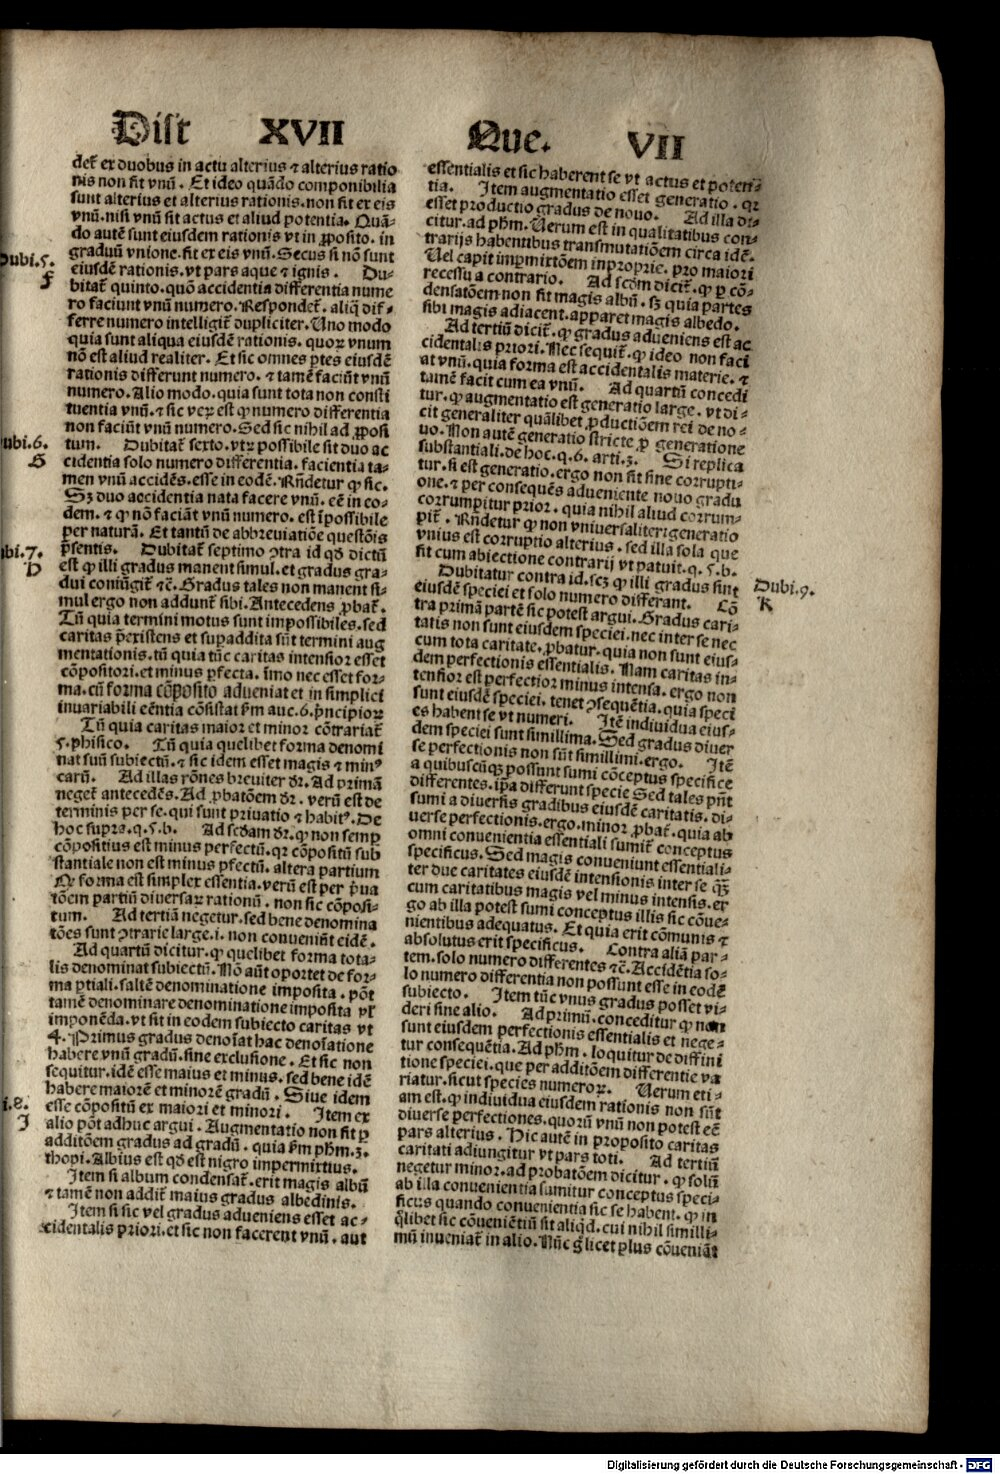 Dist XVII Que. VII
det̄ ex duobus in actu alterius ⁊ alterius ratio
nis non fit vnū. Et ideo quādo componibilia
sunt alterius et alterius rationis. non fit ex eis
vnū. nisi vnū sit actus et aliud potentia. Quā-
do autē sunt eiusdem rationis vt in ꝓposito. in
graduū vnione. fit ex eis vnū. Secus si nō sunt
eiusdē rationis. vt pars aque ⁊ ignis. Du-
bitat̄ quinto. quō accidentia differentia nume
ro faciunt vnū numero. Respondet̄. aliq̄ dif-
ferre numero intelligit̄ dupliciter. Uno modo
quia sunt aliqua eiusdē rationis. quoꝝ vnum
nō est aliud realiter. Et sic omnes ꝑtes eiusdē
rationis differunt numero. ⁊ tamē faciūt vnū
numero. Alio modo. quia sunt tota non consti
tuentia vnū. ⁊ sic veꝝ est ꝙ numero differentia
non faciūt vnū numero. Sed sic nihil ad ꝓposi
tum. Dubitat̄ sexto. vtꝝ possibile sit duo ac
cidentia solo numero differentia. facientia ta-
men vnū accidēs. esse in eodē. Rn̄detur ꝙ sic.
Sꝫ duo accidentia nata facere vnū. eē in eo-
dem. ⁊ ꝙ nō faciāt vnū numero. est īpossibile
per naturā. Et tantū de abbreviatiōe questōis
p̄sentis. Dubitat̄ septimo ꝯtra id qd̄ dictū
est ꝙ illi gradus manent simul. et gradus gra-
dui coniūgit̄ ⁊c̄. Gradus tales non manent si-
mul ergo non addunt̄ sibi. Antecedens ꝓbat̄.
Tū quia termini motus sunt impossibiles. sed
caritas p̄existens et suꝑaddita sūt termini aug
mentationis. tū quia tūc caritas intensior esset
cōpositori. et minus ꝑfecta. īmo nec esset for-
ma. cū forma cōposito adueniat et in simplici
inuariabili eēntia cōsistat ẜm auc. 6. p̄ncipioꝝ
Tū quia caritas maior et minor cōtrariat̄
5. phisico. Tū quia quelibet forma denomi
nat suū subiectū. ⁊ sic idem esset magis ⁊ minꝰ
carū. Ad illas rōnes breuiter dr̄. Ad primā
neget̄ antecedēs. Ad ꝓbatōem dr̄. verū est de
terminis per se. qui sunt priuatio ⁊ habitꝰ. De
hoc supra. q. 5. b. Ad scd̄am dr̄. ꝙ non semꝑ
cōpositius est minus perfectū. qꝛ cōpositū sub
stantiale non est minus ꝑfectū. altera partium
ꝙ forma est simplex essentia. verū est per p̄ua
tōem partiū diuersaꝝ rationū. non sic cōposi-
tum. Ad tertiā negetur. sed bene denomina
tōes sunt ꝯtrarie large. i. non conueniūt eidē.
Ad quartū dicitur. ꝙ quelibet forma tota-
lis denominat subiectū. Nō aūt oportet de for-
ma ꝑtiali. saltē denominatione imposita. pōt
tamē denominare denominatione imposita vł
imponēda. vt sit in eodem subiecto caritas vt
4. Primus gradus denoīat hac denoīatione
habere vnū gradū. sine exclusione. Et sic non
sequitur. idē esse maius et minus. sed bene idē
habere maiorē et minorē gradū. Siue idem
esse cōpositū ex maiori et minori. Item ex
alio pōt adhuc argui. Augmentatio non fit ꝑ
additōem gradus ad gradū. quia ẜm pḣm. 3.
thopi. Albius est qd̄ est nigro impermixtius.
Item si album condensat̄. erit magis albū
⁊ tamē non addit̄ maius gradus albedinis.
Item si sic vel gradus adueniens esset ac-
cidentalis priori. et sic non facerent vnū. aut
ubi. 5.
f
ubi. 6.
G
bi. 7.
h
i. 8.
J
essentialis et sic haberent se vt actus et poten-
tia. Item augmentatio esset generatio. qꝛ
esset productio gradus de nouo. Ad illa di-
citur. ad pḣm. Uerum est in qualitatibus con-
trarijs habentibus transmutatiōem circa idē.
Uel capit impmixtōem inproprie. pro maiori
recessu a contrario. Ad scd̄m dicit̄. ꝙ ꝑ cō-
densatōem non fit magis albū. sꝫ quia partes
sibi magis adiacent. apparet magis albedo.
Ad tertiū dicit̄. ꝙ gradus adueniens est ac
cidentalis priori. Nec sequit̄. ꝙ ideo non faci
at vnū. quia forma est accidentalis materie. ⁊
tamē facit cum ea vnū. Ad quartū concedi
tur. ꝙ augmentatio est generatio large. vt di-
cit generaliter quālibet ꝓductiōem rei de no-
uo. Non autē generatio stricte ꝓ generatione
substantiali. de hoc. q. 6. arti. 3. Si replica
tur. si est generatio. ergo non fit sine corrupti-
one. ⁊ per consequēs adueniente nouo gradu
corrumpitur prior. quia nihil aliud corrum-
pit̄. Rn̄detur ꝙ non vniuersaliter generatio
vnius est corruptio alterius. sed illa sola que
fit cum abiectione contrarij vt patuit. q. 5. b.
Dubitatur contra id. scꝫ ꝙ illi gradus sint
eiusdē speciei et solo numero differant. Cō
tra primā partē sic potest argui. Gradus cari-
tatis non sunt eiusdem speciei. nec inter se nec
cum tota caritate. ꝓbatur. quia non sunt eius-
dem perfectionis essentialis. Nam caritas in-
tensior est perfectior minus intensa. ergo non
sunt eiusdē speciei. tenet ꝯsequētia. quia speci
es habent se vt numeri. Itē indiuidua eius-
dem speciei sunt simillima. Sed gradus diuer
se perfectionis non sūt simillimi. ergo. Itē
a quibuscūqꝫ possunt sumi cōceptus specifice
differentes. ip̄a differunt specie Sed tales pn̄t
sumi a diuersis gradibus eiusdē caritatis. di-
uerse perfectionis. ergo. minor ꝓbat̄. quia ab
omni conuenientia essentiali sumit̄ conceptus
specificus. Sed magis conueniunt essentiali-
ter due caritates eiusdē intensionis inter se q̄ꝫ
cum caritatibus magis vel minus intensis. er
go ab illa potest sumi conceptus illis sic cōue-
nientibus adequatus. Et quia erit cōmunis ⁊
absolutus erit specificus. Contra aliā par-
tem. solo numero differentes ⁊c̄. Accidētia so-
lo numero differentia non possunt esse in eodē
subiecto. Item tūc vnus gradus posset vi-
deri sine alio. Ad primū. conceditur ꝙ non
sunt eiusdem perfectionis essentialis et nege-
tur consequētia. Ad pḣm. loquitur de diffini
tione speciei. que per additōem differentie va
riatur. sicut species numeroꝝ. Uerum eti-
am est. ꝙ indiuidua eiusdem rationis non sūt
diuerse perfectiones. quorū vnū non potest eē
pars alterius. Hic autē in proposito caritas
caritati adiungitur vt pars toti. Ad tertiū
negetur minor. ad probatōem dicitur. ꝙ solū
ab illa conuenientia sumitur conceptus speci-
ficus quando conuenientia sic se habent. ꝙ in
q̄libet sic cōueniētiū sit aliqd̄. cui nihil simili-
mū inueniat̄ in alio. Nūc gͦ licet plus cōueniāt
Dubi. 9.
K
Digitalisierung gefördert durch die Deutsche Forschungsgemeinschaft - DFG